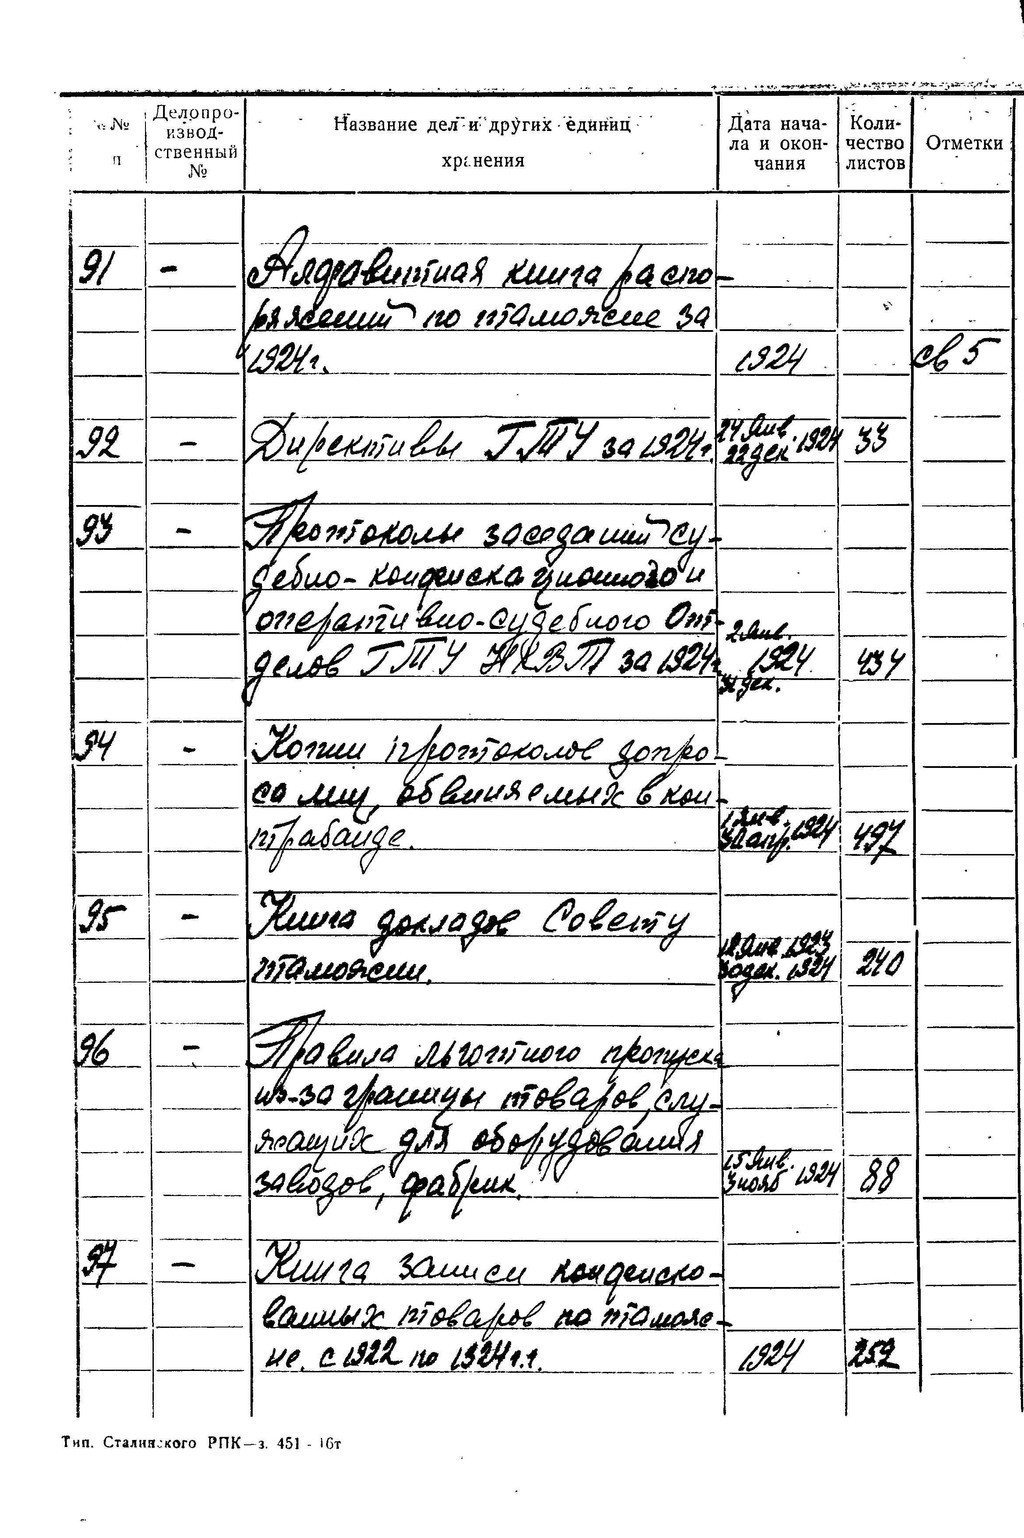 №№ п
Делопро-
извод-
ственный
№
Название дел и других единиц
хранения
Дата нача-
ла и окон-
чания
Коли-
чество
листов
Отметки
91 - Алфавитная книга распо-
ряжений по таможне за
1924г. 1924 св 5
92 - Директивы ГТУ за 1924г. 24 янв. 22 дек. 1924 33
93 - Протоколы заседаний су-
дебно-конфискационного и
оперативно-судебного От-
делов ГТУ НКВТ за 1924г. 2 янв. 1924 31 дек. 437
94 - Копии протоколов допро-
са лиц, обвиняемых в кон-
трабанде. 1 янв. 30 апр. 1924 497
95 - Книга докладов Совету
таможни. 12 янв. 1923 30 дек. 1924 240
96 - Правила льготного пропуска
из-за границы товаров, слу-
жащих для оборудования
заводов, фабрик. 15 янв. 3 нояб 1924 88
97 - Книга записи конфиско-
ванных товаров по таможе-
не. с 1922 по 1924 г.г. 1924 252
Тип. Сталинского РПК—з. 451 - 16т